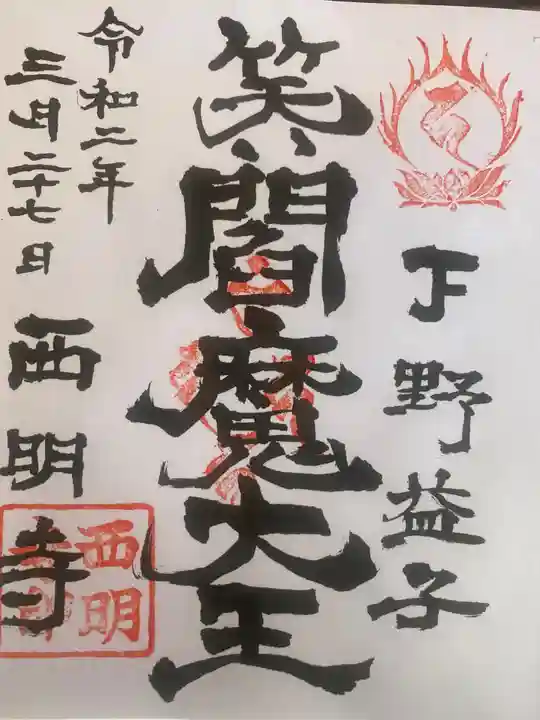 下野益子
笑閻魔大王
令和二年
三月二十七日
西明寺
西明